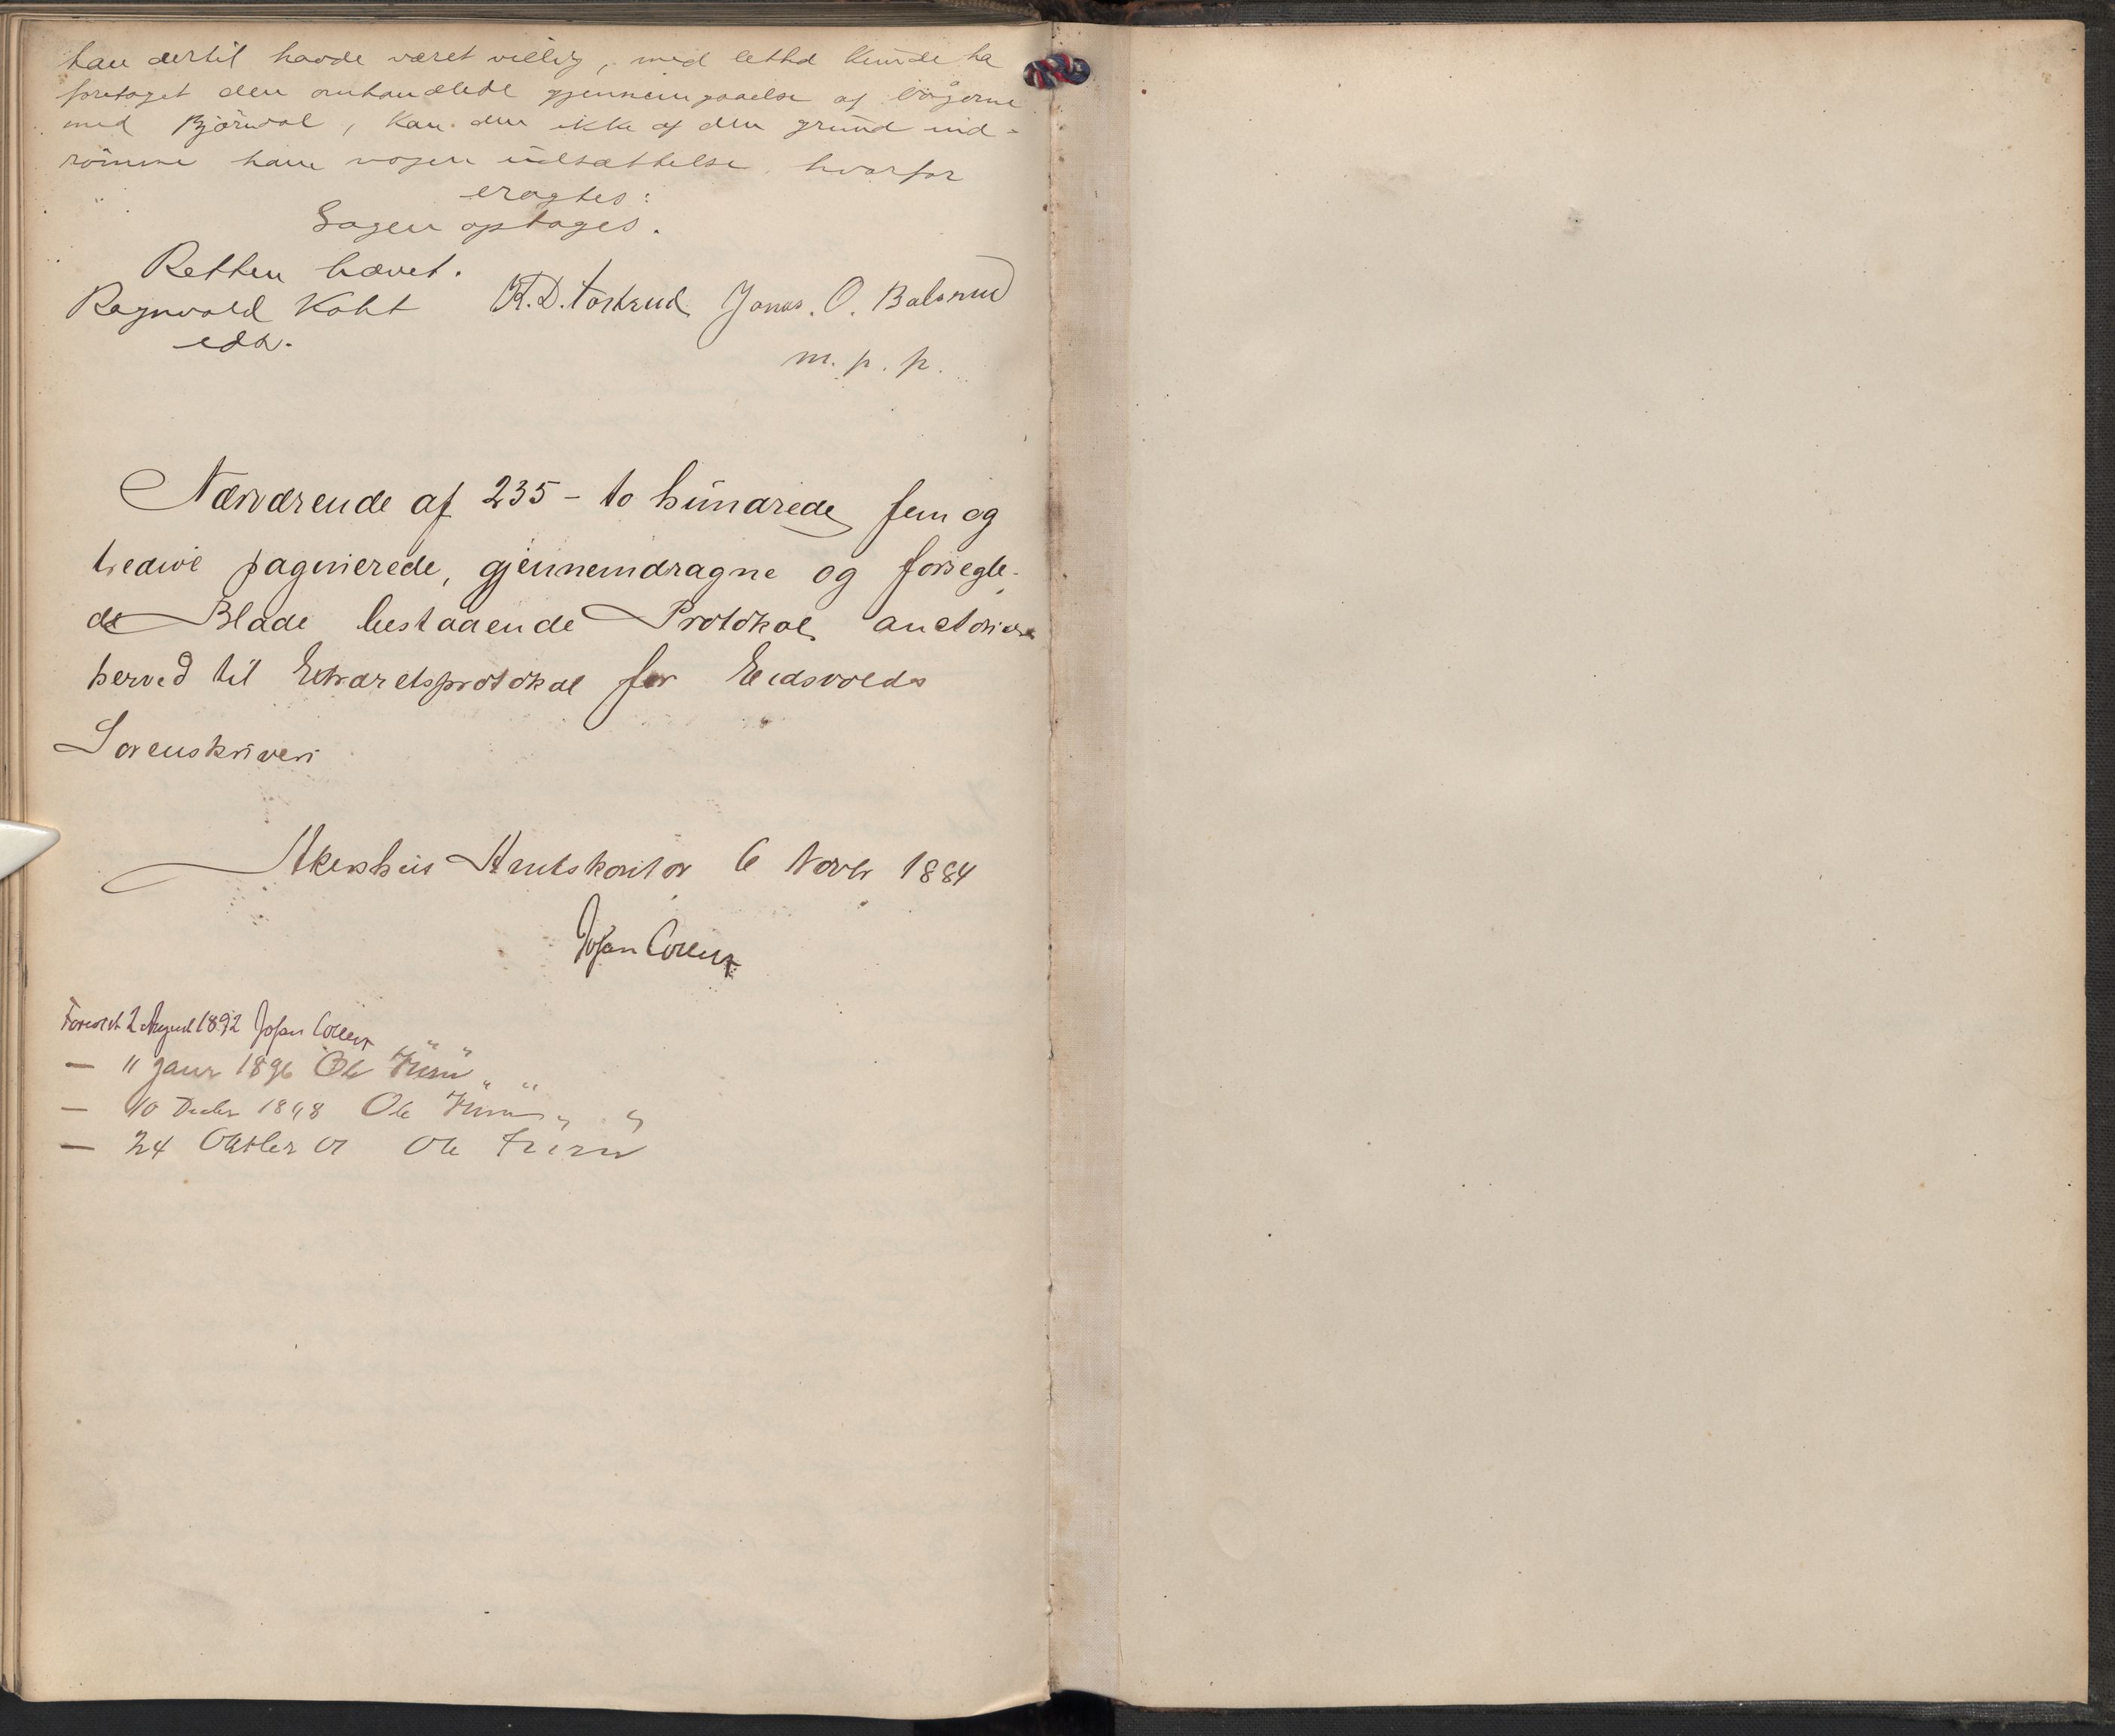 han dertil havde været villig, med lethed kunde ha
foretaget den omhandlede gjennemgaaelse af bøgerne
med Bjørvol, kan den ikke af den grund ind-
rømme ham nogen udsættelse, hvorfor
eragtes:
Sagen optages.
Retten hævet.
Ragnvald Koht K.D. Tostrud Jonas. O. Balsrud
edv.
m. p. p.
Nærværende af 235 - to hundrede fem og
tredive paginerede, gjennemdragne og forsegle-
de Blade bestaaende Protokol auctoriseres
herved til Extraretsprotokol for Eidsvolds
Sorenskriveri
Akershus Amtskontor 6 Novbr 1884
Johan Collett
Forevist 2 August 1892 Johan Collett
— 11 Janr 1896 Ole Furu
— 10 Decbr 1898 Ole Furu
— 24 Oktber 01 Ole Furu